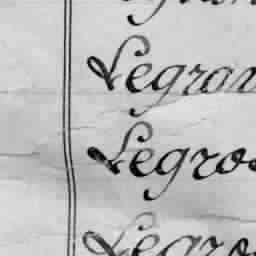 Legran
Legros
Legros